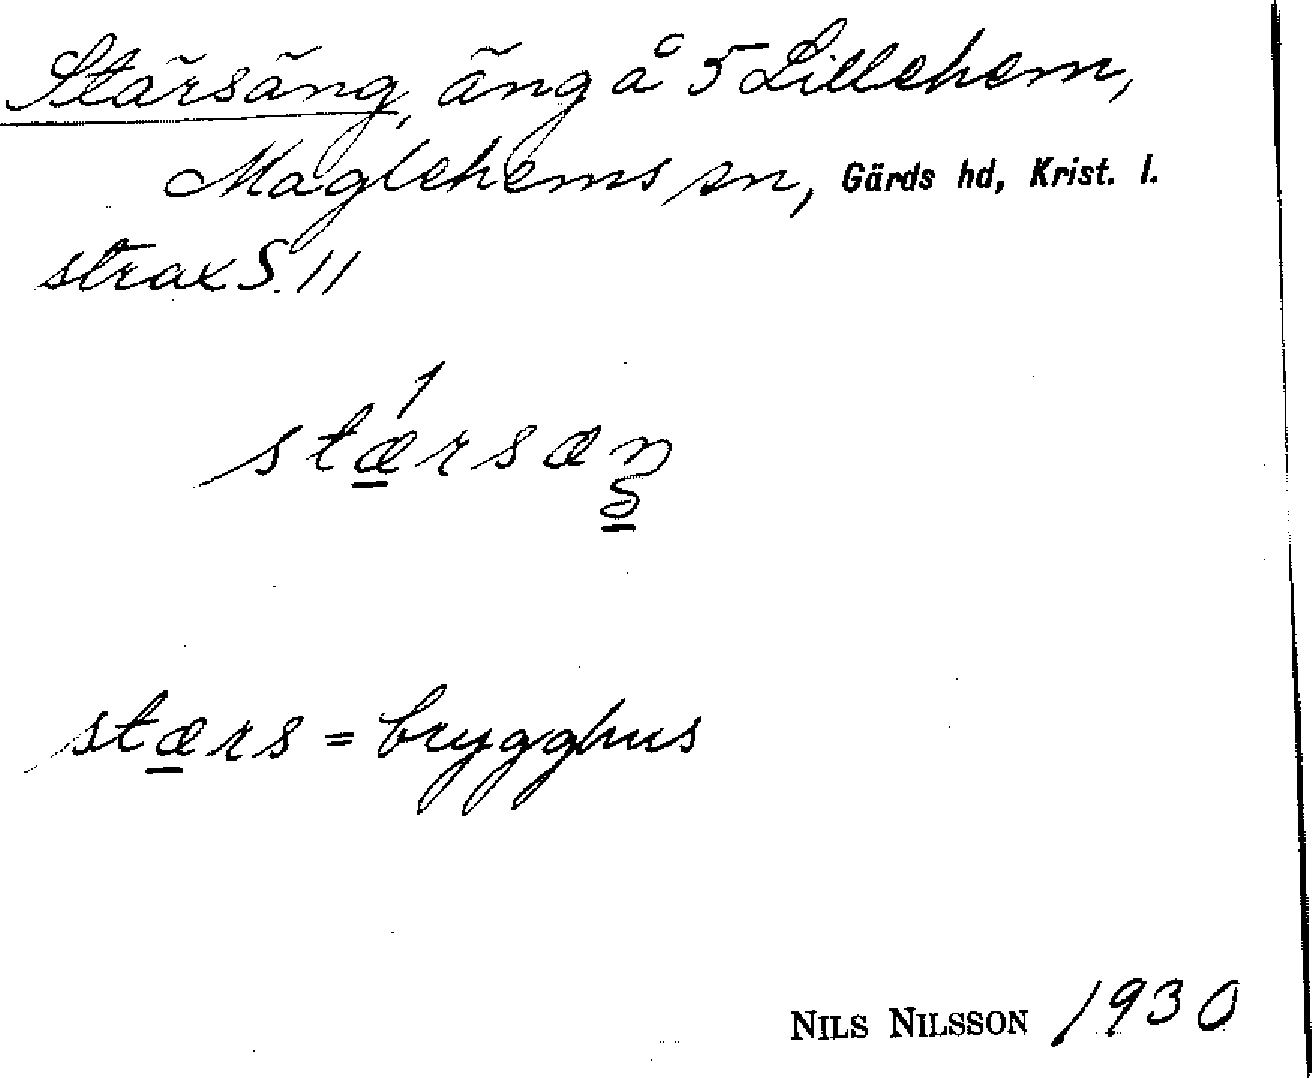 Stärsäng, äng å 5 Lillehem,
Maglehems sn, Gärds hd, Krist. l.
strax S. 11
stærsæŋ
stærs = brygghus
NILS NILSSON 1930